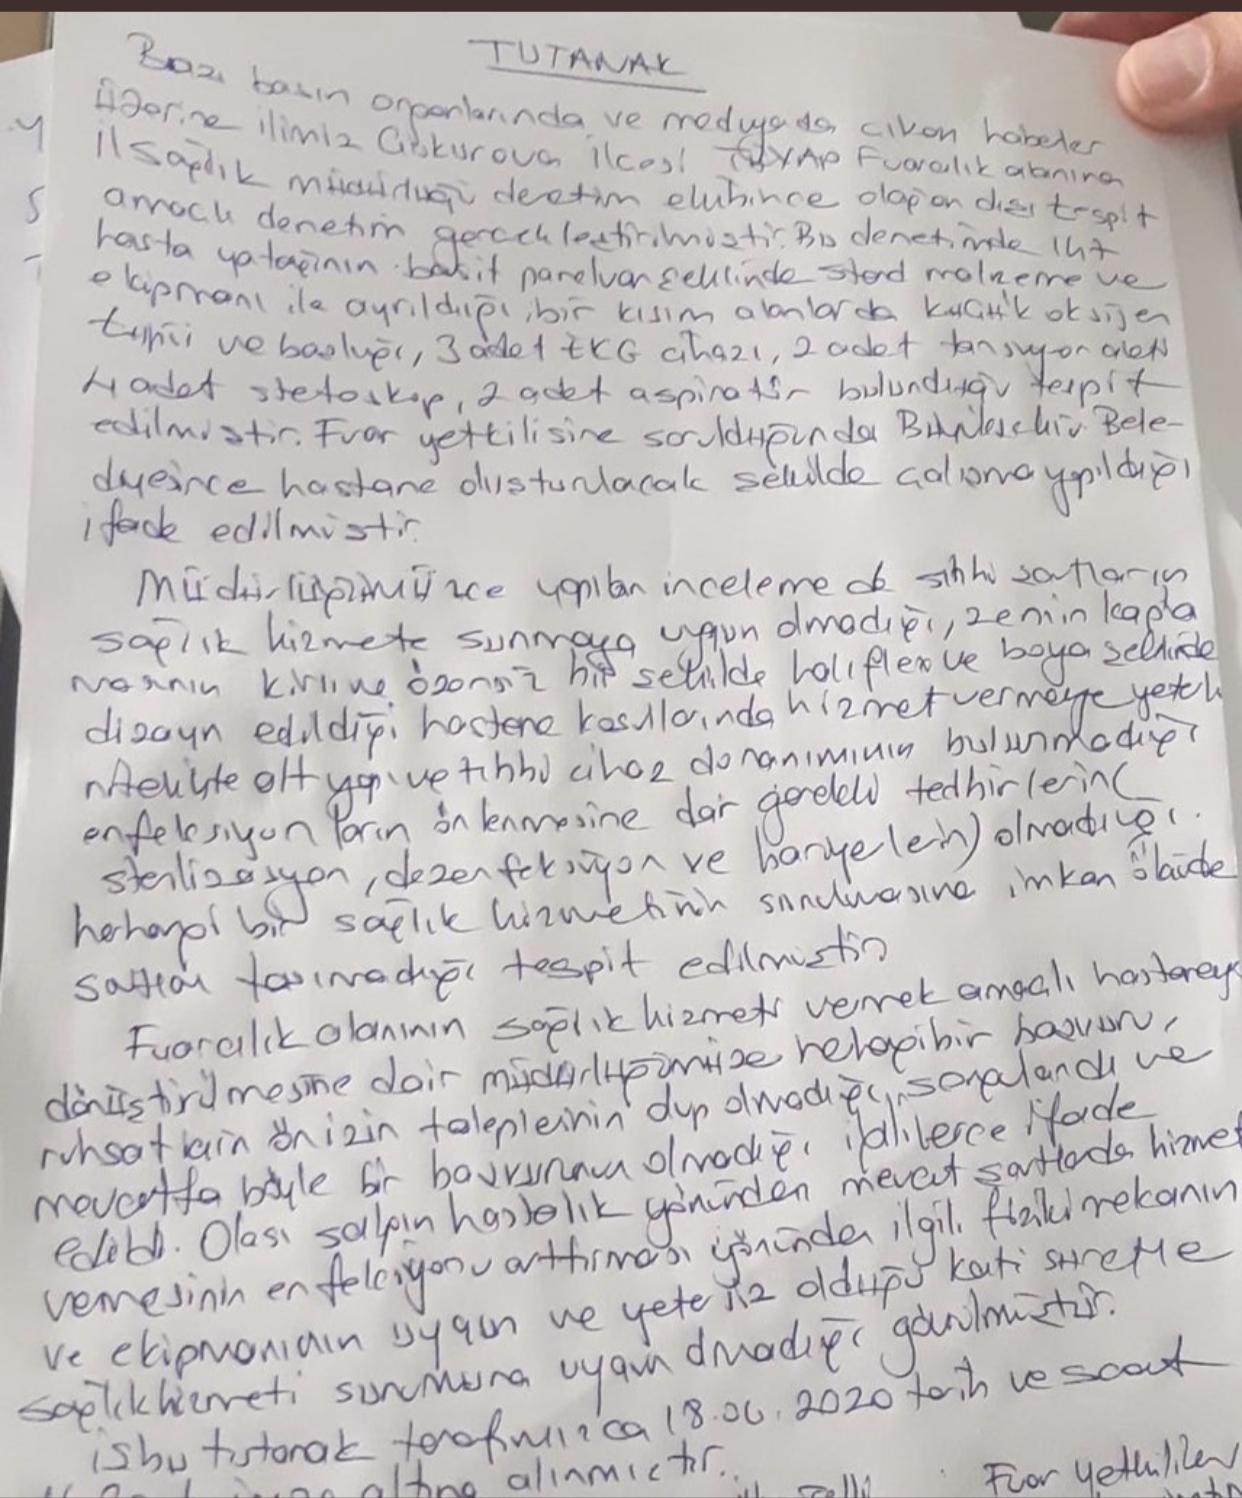 TUTANAK
Bazı basın organlarında ve medyada çıkan haberler
üzerine ilimiz Çukurova ilçesi TÜYAP Fuarcılık alanına
İl Sağlık müdürlüğü denetim ekibince olağan dışı tespit
amaçlı denetim gerçekleştirilmiştir. Bu denetimde 147
hasta yatağının basit paravan şeklinde stand malzeme ve
ekipmanı ile ayrıldığı, bir kısım alanlarda küçük oksijen
tüpü ve başlığı, 3 adet EKG cihazı, 2 adet tansiyon aleti
4 adet stetoskop, 2 adet aspiratör bulunduğu tespit
edilmiştir. Fuar yetkilisine sorulduğunda Büyükşehir Bele-
diyesince hastane oluşturulacak şekilde çalışma yapıldığı
ifade edilmiştir.
Müdürlüğümüzce yapılan incelemede sıhhi şartların
sağlık hizmete sunmaya uygun olmadığı, zemin kapla
masının kirli ve özensiz bir şekilde halıflex ve boya şeklinde
dizayn edildiği hastane koşullarında hizmet vermeye yeterli
nitelikte alt yapı ve tıbbi cihaz donanımının bulunmadığı
enfeksiyonların önlenmesine dair gerekli tedbirlerin (
sterilizasyon, dezenfeksiyon ve banyo) olmadığı.
herhangi bir sağlık hizmetinin sunulmasına imkan ölçüde
şartları taşımadığı tespit edilmiştir
Fuarcılık alanının sağlık hizmeti vermek amaçlı hastaneye
dönüştürülmesine dair müdürlüğümüze herhangi bir başvuru,
ruhsat için ön izin taleplerinin olup olmadığı, sorgulandı ve
mevcutta böyle bir başvurunun olmadığı ifade
edildi. Olası salgın hastalık yönünden mevcut şartlarda hizmet
vermesinin enfeksiyonu arttırması yönünden ilgili fiziki mekanın
ve ekipmanının uygun ve yetersiz olduğu kati suretle
sağlık hizmeti sunumuna uygun olmadığı görülmüştür.
işbu tutanak tarafımızca 18.06.2020 tarih ve saat
altına alınmıştır.
Fuar Yetkilileri